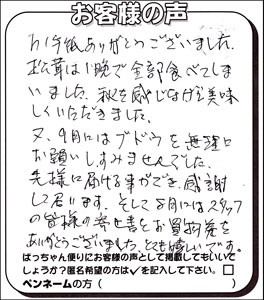 お客様の声
お手紙ありがとうございました。
松茸は1晩で全部食べてしま
いました。秋を感じながら美味
しくいただきました。
又、9月にはブドウを無理に
お願いしすみませんでした。
先様に届ける事ができ、感謝
して居ます。そして8月にはスタッフ
の皆様の寄せ書をお買物券を
ありがとうございました。とても嬉しいです。
ばっちゃん便りにお客様の声として掲載してもいいで
しょうか?匿名希望の方は✓を記入して下さい。□
ペンネームの方(　)